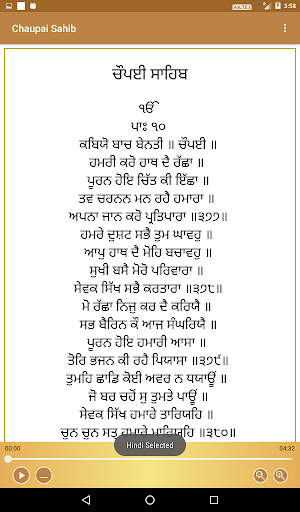 VoLTE 2 3:58
Chaupai Sahib
ਚੌਪਈ ਸਾਹਿਬ
ੴ
ਪਾਃ ੧੦
ਕਬਿਯੋ ਬਾਚ ਬੇਨਤੀ ॥ ਚੌਪਈ ॥
ਹਮਰੀ ਕਰੋ ਹਾਥ ਦੈ ਰੱਛਾ ॥
ਪੂਰਨ ਹੋਇ ਚਿੱਤ ਕੀ ਇੱਛਾ ॥
ਤਵ ਚਰਨਨ ਮਨ ਰਹੈ ਹਮਾਰਾ ॥
ਅਪਨਾ ਜਾਨ ਕਰੋ ਪ੍ਰਤਿਪਾਰਾ ॥੩੭੭॥
ਹਮਰੇ ਦੁਸ਼ਟ ਸਭੈ ਤੁਮ ਘਾਵਹੁ ॥
ਆਪੁ ਹਾਥ ਦੈ ਮੋਹਿ ਬਚਾਵਹੁ ॥
ਸੁਖੀ ਬਸੈ ਮੋਰੋ ਪਰਿਵਾਰਾ ॥
ਸੇਵਕ ਸਿੱਖ ਸਭੈ ਕਰਤਾਰਾ ॥੩੭੮॥
ਮੋ ਰੱਛਾ ਨਿਜੁ ਕਰ ਦੈ ਕਰਿਯੈ ॥
ਸਭ ਬੈਰਿਨ ਕੌ ਆਜ ਸੰਘਰਿਯੈ ॥
ਪੂਰਨ ਹੋਇ ਹਮਾਰੀ ਆਸਾ ॥
ਤੋਰਿ ਭਜਨ ਕੀ ਰਹੈ ਪਿਯਾਸਾ ॥੩੭੯॥
ਤੁਮਹਿ ਛਾਡਿ ਕੋਈ ਅਵਰ ਨ ਧਯਾਊਂ ॥
ਜੋ ਬਰ ਚਹੋਂ ਸੁ ਤੁਮਤੇ ਪਾਊਂ ॥
ਸੇਵਕ ਸਿੱਖ ਹਮਾਰੇ ਤਾਰਿਯਹਿ ॥
ਚੁਨ ਚੁਨ ਸਤ੍ਰੁ ਹਮਾਰੇ ਮਾਰਿਯਹਿ ॥੩੮੦॥
00:00 Hindi Selected 04:32